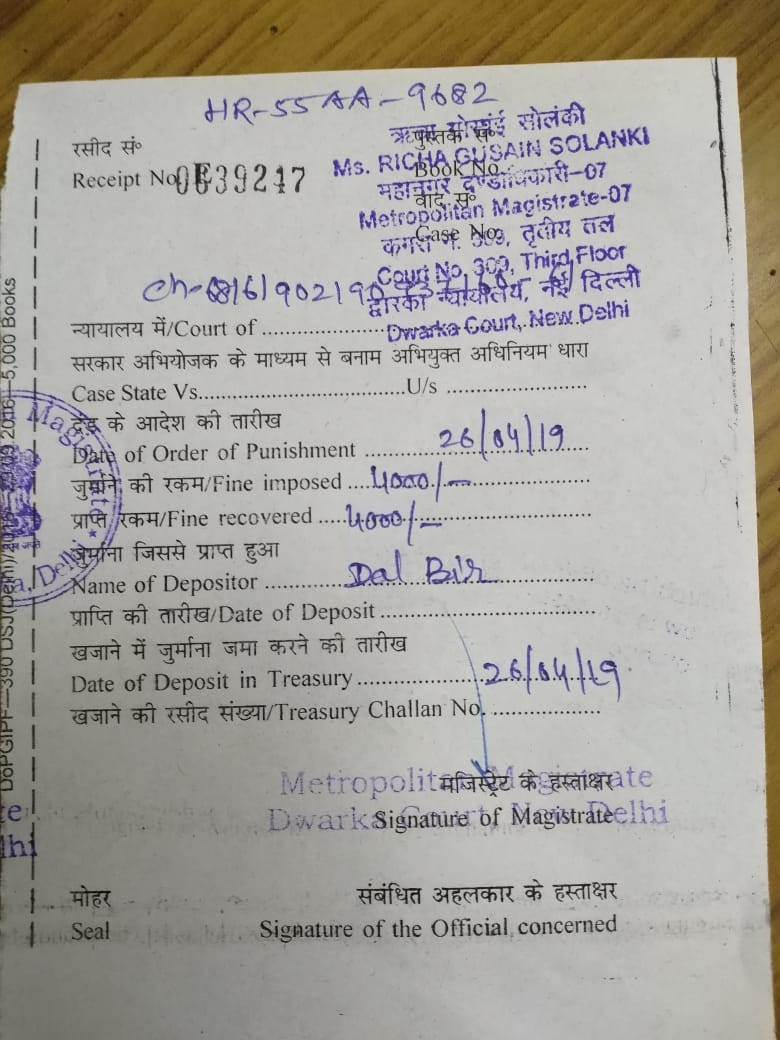 HR-55AA-9682
रसीद सं॰
पुस्तक सं॰
ऋचा गुसाईं सोलंकी
Receipt No.
639247
Book No.
Ms. RICHA GUSAIN SOLANKI
वाद सं॰
महानगर दण्डाधिकारी-07
Case No.
Metropolitan Magistrate-07
तृतीय तल
Court No. 309, Third Floor
द्वारका न्यायालय, नई दिल्ली
Dwarka Court, New Delhi
न्यायालय में/Court of
सरकार अभियोजक के माध्यम से बनाम अभियुक्त अधिनियम धारा
Case State Vs. U/s
दंड के आदेश की तारीख
Date of Order of Punishment 26/04/19
जुर्माने की रकम/Fine imposed 4000/-
प्राप्त रकम/Fine recovered 4000/-
जुर्माना जिससे प्राप्त हुआ
Name of Depositor Dal Bir
प्राप्ति की तारीख/Date of Deposit
खजाने में जुर्माना जमा करने की तारीख
Date of Deposit in Treasury 26/04/19
खजाने की रसीद संख्या/Treasury Challan No.
Metropolitan Magistrate
मजिस्ट्रेट के हस्ताक्षर
Dwarka Court, New Delhi
Signature of Magistrate
मोहर
संबंधित अहलकार के हस्ताक्षर
Seal
Signature of the Official concerned
5,000 Books